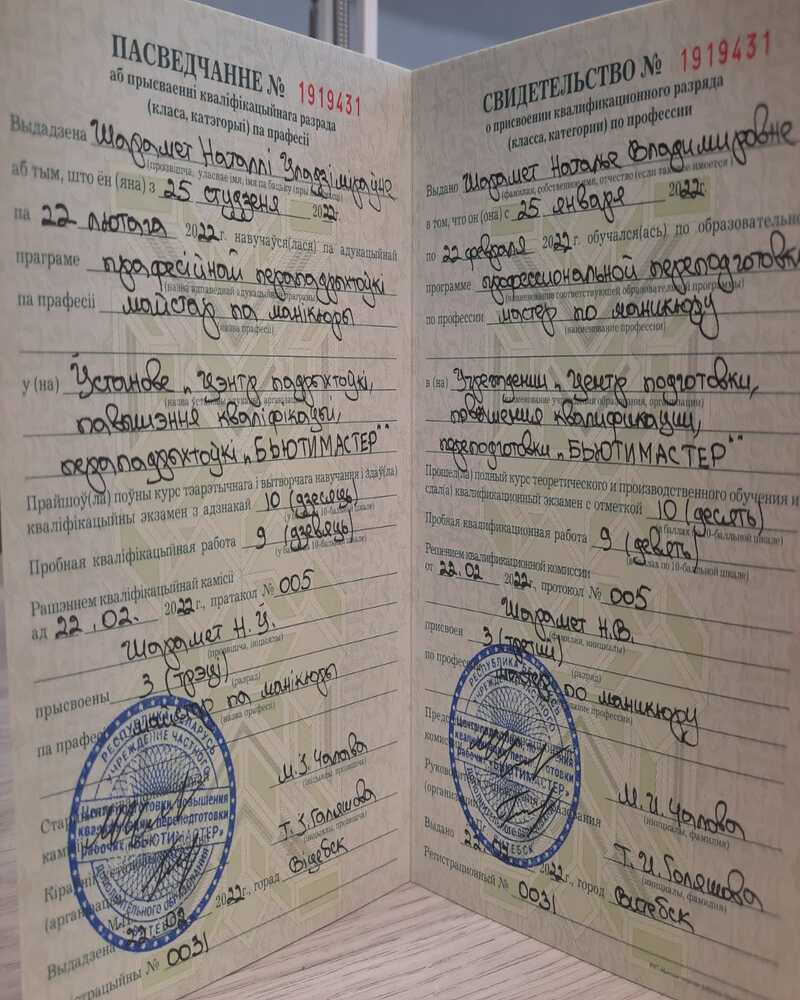 ПАСВЕДЧАННЕ № 1919431
аб прысваенні кваліфікацыйнага разрада
(класа, катэгорыі) па прафесіі
Выдадзена Шарамет Наталлі Уладзіміраўне
(прозвішча, уласнае імя, імя па бацьку (пры
аб тым, што ён (яна) з 25 студзеня 2022г.
па 22 лютага 2022г. навучаўся(лася) па адукацыйнай
праграме прафесійнай перападрыхтоўкі
(назва адпаведнай адукацыйнай праграмы)
па прафесіі майстар па манікюры
(назва прафесіі)
у (на) Установе „Цэнтр падрыхтоўкі,
павышэння кваліфікацыі,
перападрыхтоўкі „БЬЮТИМАСТЕР"
Прайшоў(ла) поўны курс тэарэтычнага і вытворчага навучання і здаў(ла)
кваліфікацыйны экзамен з адзнакай 10 (дзесяць)
Пробная кваліфікацыйная работа 9 (дзевяць)
(у балах па 10-бальнай шкале)
Рашэннем кваліфікацыйнай камісіі
ад 22.02. 2022г., пратакол № 005
Шарамет Н.У.
(прозвішча, ініцыялы)
прысвоены 3 (трэці)
(разрад)
па прафесіі майстар па манікюры
(назва прафесіі)
М.І. Чалова
(ініцыялы, прозвішча)
Т.І. Галяшова
(ініцыялы, прозвішча)
Выдадзена 22.02 2022г., горад Віцебск
№ 0031
СВИДЕТЕЛЬСТВО № 1919431
о присвоении квалификационного разряда
(класса, категории) по профессии
Выдано Шарамет Наталье Владимировне
(фамилия, собственное имя, отчество (если таковое имеется)
в том, что он (она) с 25 января 2022г.
по 22 февраля 2022г. обучался(ась) по образовательной
программе профессиональной переподготовки
(наименование соответствующей образовательной программы)
по профессии мастер по маникюру
(наименование профессии)
в (на) Учреждении „Центр подготовки,
повышения квалификации,
переподготовки „БЬЮТИМАСТЕР"
Прошел(ла) полный курс теоретического и производственного обучения и
сдал(а) квалификационный экзамен с отметкой 10 (десять)
(в баллах по 10-балльной шкале)
Пробная квалификационная работа 9 (девять)
(в баллах по 10-балльной шкале)
Решением квалификационной комиссии
от 22.02 2022г., протокол № 005
Шарамет Н.В.
(фамилия, инициалы)
присвоен 3 (третий)
(разряд)
по профессии мастер по маникюру
М.И. Чалова
(инициалы, фамилия)
Т.И. Галяшова
(инициалы, фамилия)
Выдано 22 2022г., город Витебск
Регистрационный № 0031